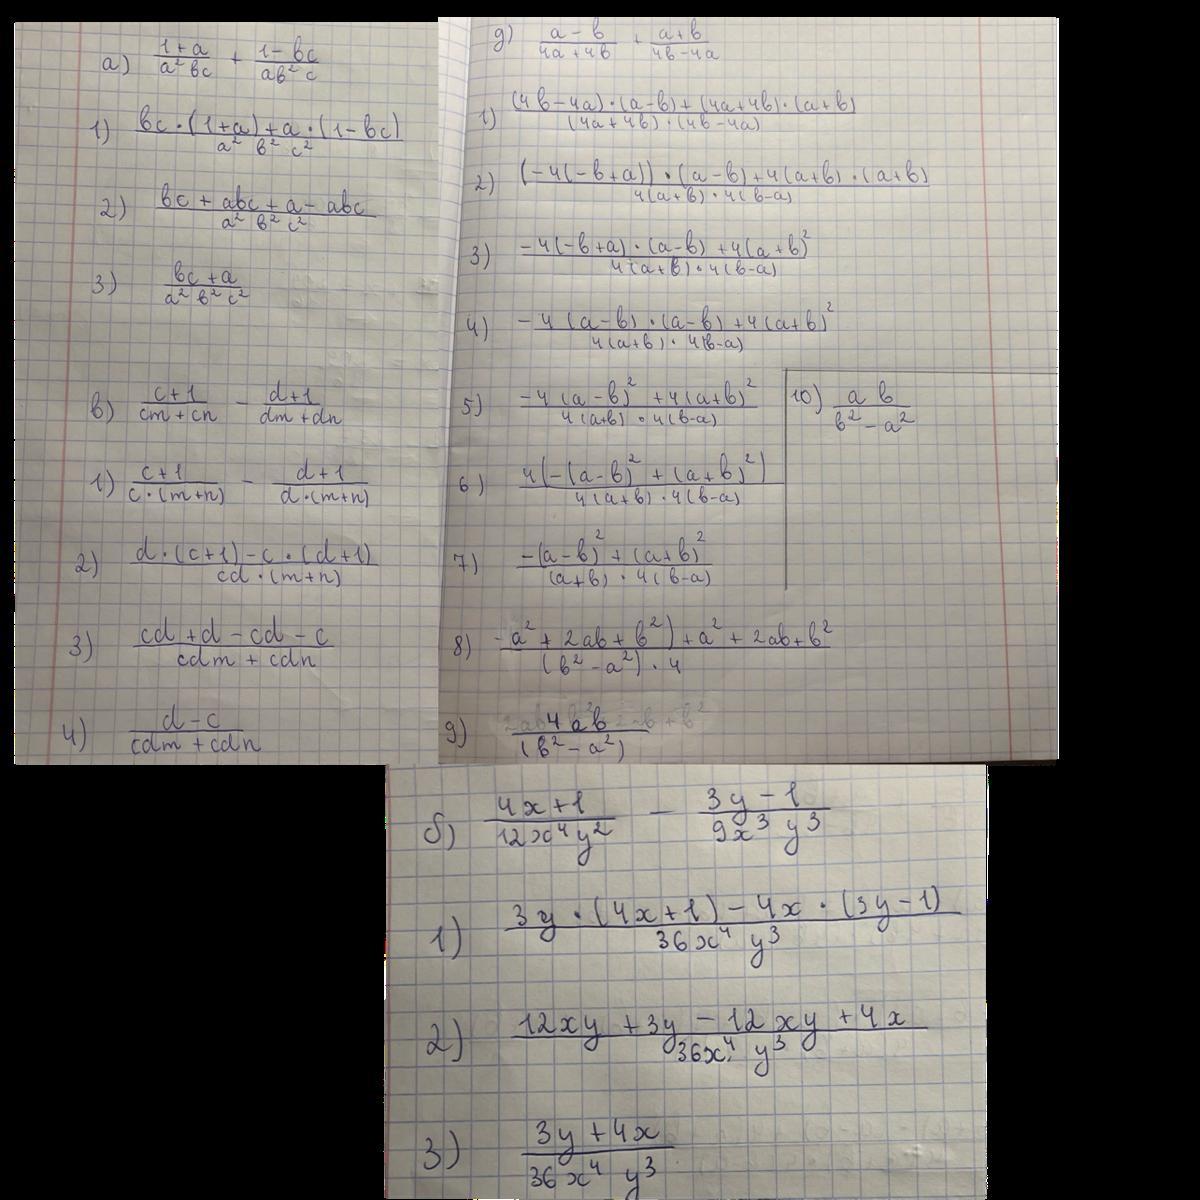 а) (1+a)/(a² bc) + (1-bc)/(ab² c)
1) (bc · (1+a) + a · (1-bc))/(a² b² c²)
2) (bc + abc + a - abc)/(a² b² c²)
3) (bc + a)/(a² b² c²)
в) (c+1)/(cm+cn) - (d+1)/(dm+dn)
1) (c+1)/(c·(m+n)) - (d+1)/(d·(m+n))
2) (d·(c+1) - c·(d+1))/(cd·(m+n))
3) (cd + d - cd - c)/(cdm + cdn)
4) (d-c)/(cdm + cdn)
g) (a-b)/(4a+4b) + (a+b)/(4b-4a)
1) ((4b-4a)·(a-b) + (4a+4b)·(a+b))/((4a+4b)·(4b-4a))
2) ((-4(-b+a))·(a-b) + 4(a+b)·(a+b))/(4(a+b)·4(b-a))
3) (-4(-b+a)·(a-b) + 4(a+b)²)/(4(a+b)·4(b-a))
4) (-4(a-b)·(a-b) + 4(a+b)²)/(4(a+b)·4(b-a))
5) (-4(a-b)² + 4(a+b)²)/(4(a+b)·4(b-a))
6) 4(-(a-b)² + (a+b)²)/(4(a+b)·4(b-a))
7) (-(a-b)² + (a+b)²)/((a+b)·4(b-a))
8) -a² + 2ab + b²) + a² + 2ab + b²/((b²-a²)·4)
9) 4ab/(b²-a²)
10) a b/(b²-a²)
б) (4x+1)/(12x⁴y²) - (3y-1)/(9x³ y³)
1) (3y·(4x+1) - 4x·(3y-1))/(36x⁴ y³)
2) (12xy + 3y - 12xy + 4x)/(36x⁴ y³)
3) (3y + 4x)/(36x⁴ y³)